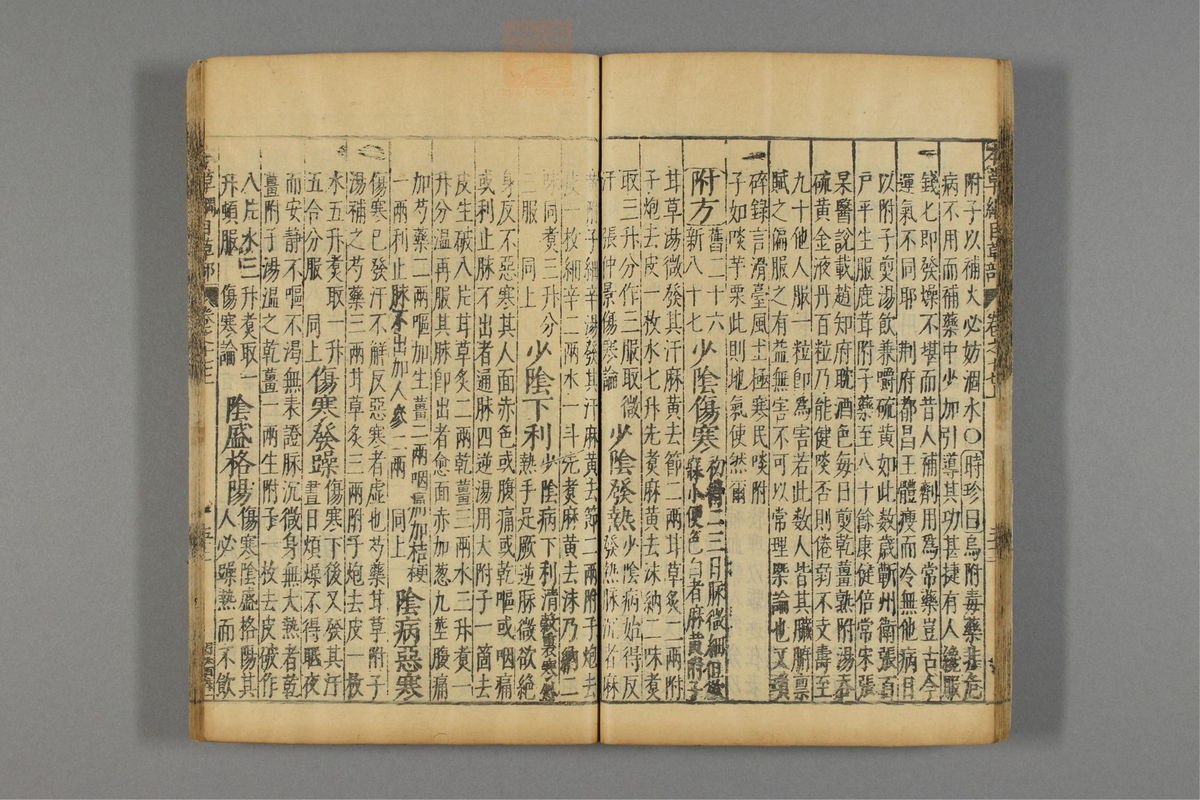 本草綱目草部
附子以補火必妨涸水○時珍曰烏附毒藥非危
病不用而補藥中少加引導其功甚捷有人纔服
錢七即發燥不堪而昔人補劑用爲常藥豈古今
運氣不同耶荆府都昌王體瘦而冷無他病日
以附子煎湯飲兼嚼硫黄如此數歲蘄州衛張百
戶平生服鹿茸附子藥至八十餘康健倍常宋張
杲醫說載趙知府耽酒色每日煎乾薑熟附湯吞
硫黄金液丹百粒乃能健啖否則倦弱不支壽至
九十他人服一粒即爲害若此數人皆其臟腑稟
賦之偏服之有益無害不可以常理槩論也又瑣
碎錄言滑臺風土極寒民啖附
子如啖芋栗此則地氣使然爾
附方 舊二十六新八十七 少陰傷寒 初得二三日脉微細但欲
寐小便色白者麻黄附子
甘草湯微發其汗麻黄去節二兩甘草炙二兩附
子炮去皮一枚水七升先煮麻黄去沫納二味煮
取三升分作三服取微
汗 張仲景傷寒論 少陰發熱 少陰病始得反
發熱脉沉者麻
黄附子細辛湯發其汗麻黄去節二兩附子炮去
皮一枚細辛二兩水一斗先煮麻黄去沫乃納二
味同煮三升分
三服 同上 少陰下利 少陰病下利清穀裏寒外
熱手足厥逆脉微欲絶
身反不惡寒其人面赤色或腹痛或乾嘔或咽痛
或利止脉不出者通脉四逆湯用大附子一箇去
皮生破八片甘草炙二兩乾薑三兩水三升煮一
升分温再服其脉即出者愈面赤加葱九莖腹痛
加芍藥二兩嘔加生薑二兩咽痛加桔梗
一兩利止脉不出加人參二兩 同上 陰病惡寒
傷寒已發汗不解反惡寒者虛也芍藥甘草附子
湯補之芍藥三兩甘草炙三兩附子炮去皮一枚
水五升煮取一升
五合分服 同上 傷寒發躁 傷寒下後又發其汗
晝日煩燥不得眠夜
而安静不嘔不渴無表證脉沉微身無大熱者乾
薑附子湯温之乾薑一兩生附子一枚去皮破作
八片水三升煮取一
升頓服 傷寒論 陰盛格陽 傷寒陰盛格陽其
人必躁熱而不飲
本草綱目草部